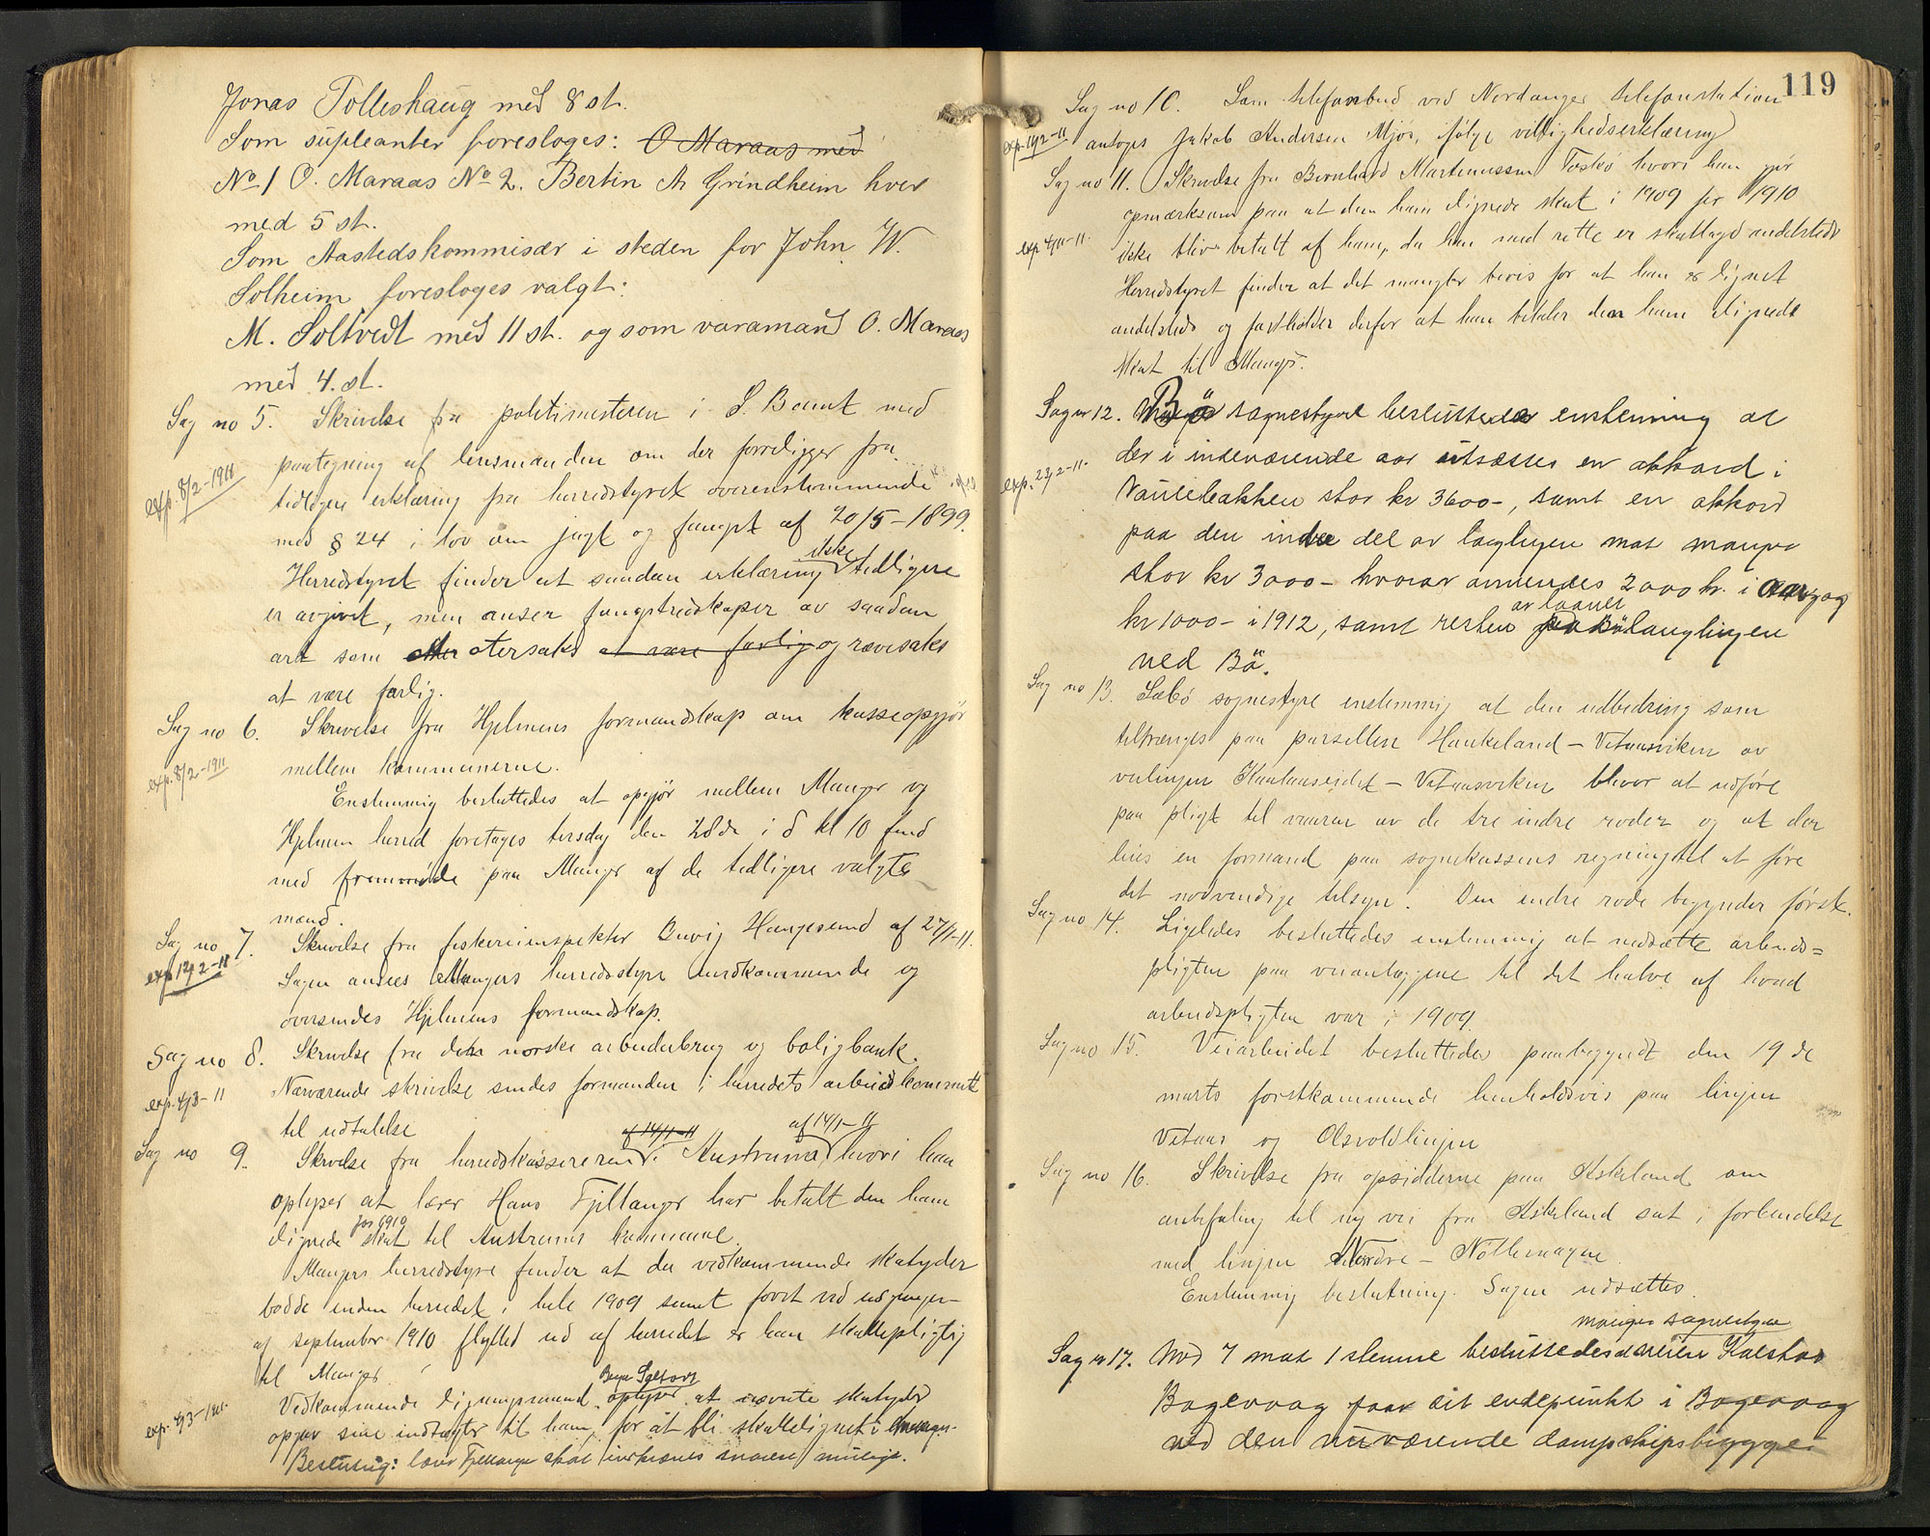 Jonas Tolleshaug med 8 st.
Som supleanter foresloges: O Maraas med
No 1 O. Maraas No 2. Bertin A. Grindheim hver
med 5 st.
Som Aastedskommisær i steden for John W.
Solheim foresloges valgt:
M. Soltvedt med 11 st. og som varamand O. Maraas
med 4. st.
Sag no 5. Skrivelse fra politimesteren i S. Bamt med
exp. 8/2-1911
paategning af lensmanden om der foreligger fra
tidligere erklæring fra herredstyret overensstemmende
med § 24 i lov om jagt og fangst af 20/5-1899.
Herredstyret finder at saadan erklæring ikke tidligere
er avgivet, men anser fangstredskaper av saadan
art som otersaks at være farlig og rævesaks
at være farlig.
Sag no 6. Skrivelse fra Hjelmens formandskap om kasseopgjør
exp. 8/2-1911
mellem kommunerne.
Enstemmig besluttedes at opgjør mellem Manger og
Hjelmen herred foretages tirsdag den 28de i d kl 10 fmd
med fremmøde paa Manger af de tidligere valgte
mænd.
Sag no 7. Skrivelse fra fiskeriinspektør Buvig Haugesund af 27/1-11.
exp 14/2-11
Sagen ansees Mangers herredsstyre uvedkommende og
oversendes Hjelmens formandskap.
Sag no 8. Skrivelse fra den norske arbeiderbrug og boligbank.
exp. 4/3-11
Nærværende skrivelse sendes formanden i herredets arbeidskommitt
til udtalelse
Sag no 9. Skrivelse fra herredskassereren i Austrumd af 14/1-11 hvori han
af 14/1-11
oplyser at lærer Hans Fjellanger har betalt den ham
lignede skat for 1910 til Austrums kommune.
Mangers herredsstyre finder at da vedkommende skatyder
bodde inden herredet i hele 1909 samt først ved udgangen
af september 1910 flytted ud af herredet er han skattepligtig
til Manger.
exp. 4/3-1911.
Vedkommende ligningsmand oplyser at nævnte skatyder
opgav sine indtægter til ham, for at bli skattelignet i Manger.
Beslutning: lærer Fjellanger skat inkræves snarest mulig.
119
Sag no 10. Som telefonbud ved Nordanger telefonstation
exp. 14/2-11 antoges Jakob Andersen Mjøs, ifølge villighedserklæring
Sag no 11. Skrivelse fra Bernhard Martinussen Toskø hvori han gjør
opmærksom paa at den ham lignede skat i 1909 for 1910
exp. 4/3-11.
ikke blir betalt af ham, da han med rette er skattlagd andetsteds
Herredstyret finder at det mangler bevis for at han er lignet
andetsteds og fastholder derfor at han betaler den ham lignede
skat til Manger.
Sag no 12. Bø sognestyre besluttede enstemmig at
exp. 23/2-11.
der i indeværende aar utsættes en akkord i
bakken stor kr 3600-, samt en akkord
paa den indre del av linjen mot Manger
stor kr 3000- hvorav anvendes 2000 kr. i aar og
kr 1000- i 1912, samt resten av laanet
ved Bø.
Sag no 13. Sæbø sognestyre enstemmig at den udbedring som
tiltrænges paa parsellen Haukeland - Vetaasviken av
veilinjen Kanlanseidet - Vetaasviken blever at udføre
paa pligt til vaaren av de tre indre roder og at der
leies en formand paa sognekassens regning til at føre
det nødvendige tilsyn. Den indre rode begynder først.
Sag no 14. Ligeledes besluttedes enstemmig at nedsætte arbeids=
pligten paa veianlæggene til det halve af hvad
arbeidspligten var i 1909.
Sag no 15. Veiarbeidet besluttedes paabegyndt den 19 de
marts førstkommende henholdsvis paa linjen
Vetaas og Olsvoldlinjen
Sag no 16. Skrivelse fra opsidderne paa Askeland om
anbefaling til ny vei fra Askeland sat i forbindelse
med linjen Nordre - Nøtlevaagen
Enstemmig beslutning. Sagen udsættes.
Sag no 17. Med 7 mot 1 stemme besluttedes mangers sognestyre at veien Kalstad
Bogevaag faar sit endepunkt i Bogevaag
ved den nuværende dampskipsbrygge.